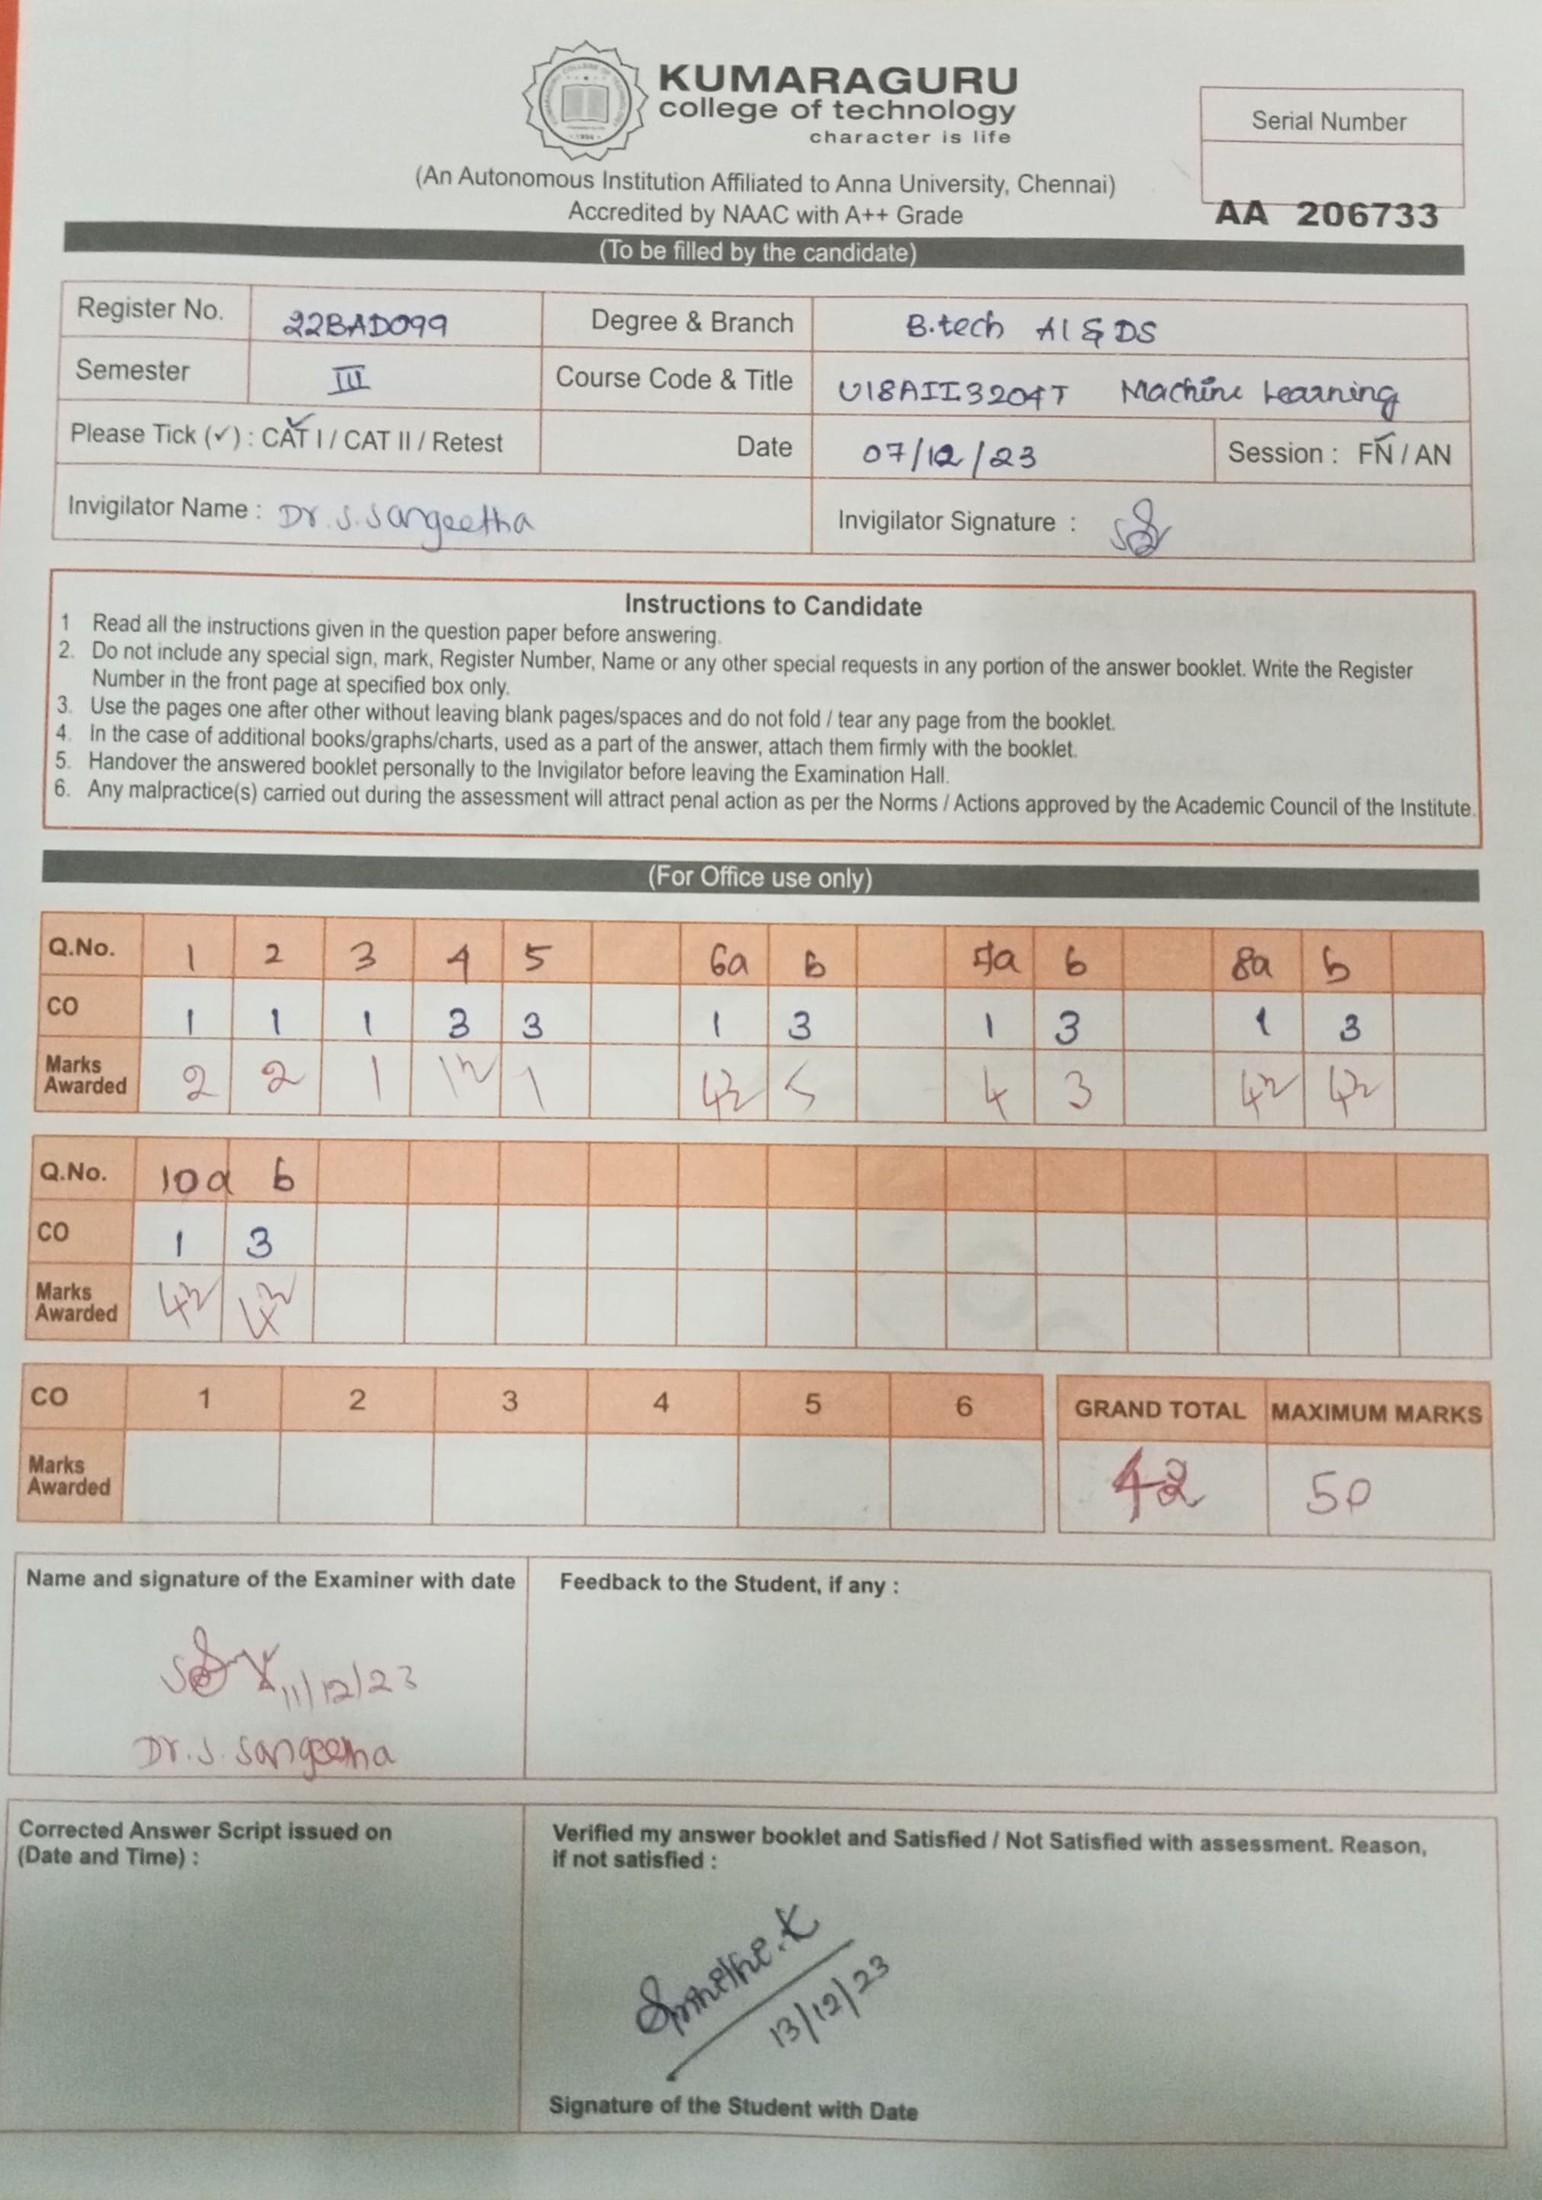 KUMARAGURU
college of technology
character is life
(An Autonomous Institution Affiliated to Anna University, Chennai)
Accredited by NAAC with A++ Grade
Serial Number
AA 206733
(To be filled by the candidate)
Register No. 22BAD099 Degree & Branch B.tech AI & DS
Semester III Course Code & Title U18AII3204T Machine Learning
Please Tick (✓) : CAT I / CAT II / Retest Date 07/12/23 Session : FN / AN
Invigilator Name : Dr. S. Sangeetha Invigilator Signature :
Instructions to Candidate
1 Read all the instructions given in the question paper before answering.
2. Do not include any special sign, mark, Register Number, Name or any other special requests in any portion of the answer booklet. Write the Register
Number in the front page at specified box only.
3. Use the pages one after other without leaving blank pages/spaces and do not fold / tear any page from the booklet.
4. In the case of additional books/graphs/charts, used as a part of the answer, attach them firmly with the booklet.
5. Handover the answered booklet personally to the Invigilator before leaving the Examination Hall.
6. Any malpractice(s) carried out during the assessment will attract penal action as per the Norms / Actions approved by the Academic Council of the Institute.
(For Office use only)
Q.No. 1 2 3 4 5 6a b a b 8a b
CO 1 1 1 3 3 1 3 1 3 1 3
Marks
Awarded 2 2 1 1½ 1 4½ 5 4 3 4½ 4½
Q.No. 10a b
CO 1 3
Marks
Awarded 4½ 4½
CO 1 2 3 4 5 6 GRAND TOTAL MAXIMUM MARKS
Marks
Awarded 42 50
Name and signature of the Examiner with date Feedback to the Student, if any :
11/12/23
Dr. S. Sangeetha
Corrected Answer Script issued on
(Date and Time) :
Verified my answer booklet and Satisfied / Not Satisfied with assessment. Reason,
if not satisfied :
13/12/23
Signature of the Student with Date